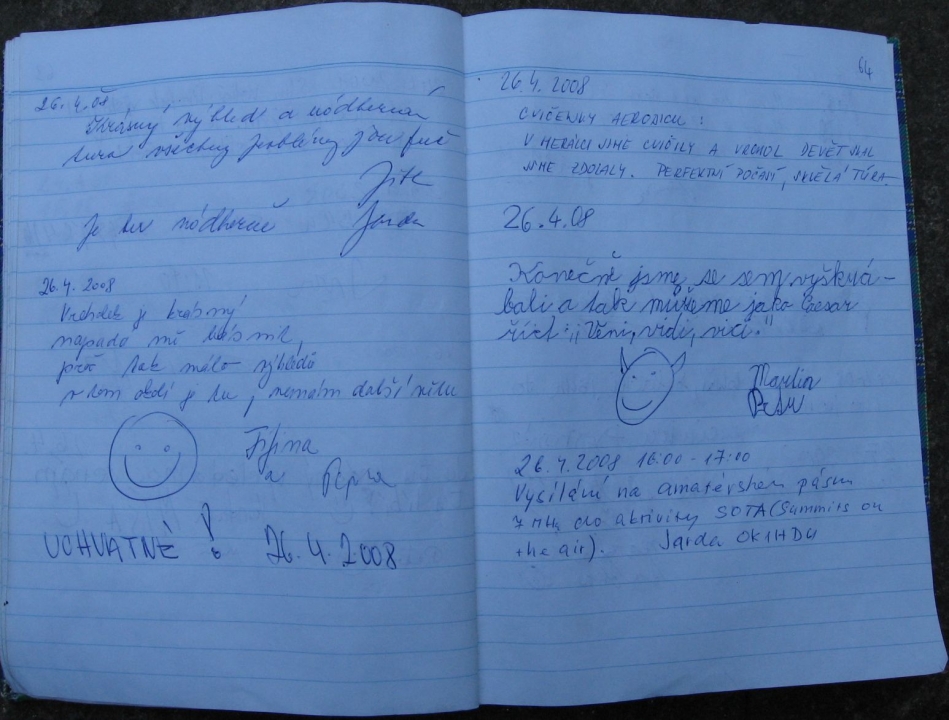 26.4.08
Krásný výhled a nádherná
túra všechny problémy jsou fuč
Jitk
Je tu nádherně Jarda
26.4.2008
Vrcholek je krásný
napadá mě básnit,
proč tak málo výhledů
v tom okolí je tu, nemám další větu
a
ÚCHVATNÉ! 26.4.2008
64
26.4.2008
CVIČENKY AEROBICU:
V HERÁLCI JSME CVIČILY A VRCHOL DEVĚT SKAL
JSME ZDOLALY. PERFEKTNÍ POČASÍ, SKVĚLÁ TÚRA.
26.4.08
Konečně jsme se sem vyškrá-
bali a tak můžeme jako Caesar
říct: „Véni, vidi, vici."
Martin
Petr
26.4.2008 16:00-17:00
Vysílání na amatérském pásmu
7 MHz do aktivity SOTA (Summits on
the air). Jarda OK1HDU